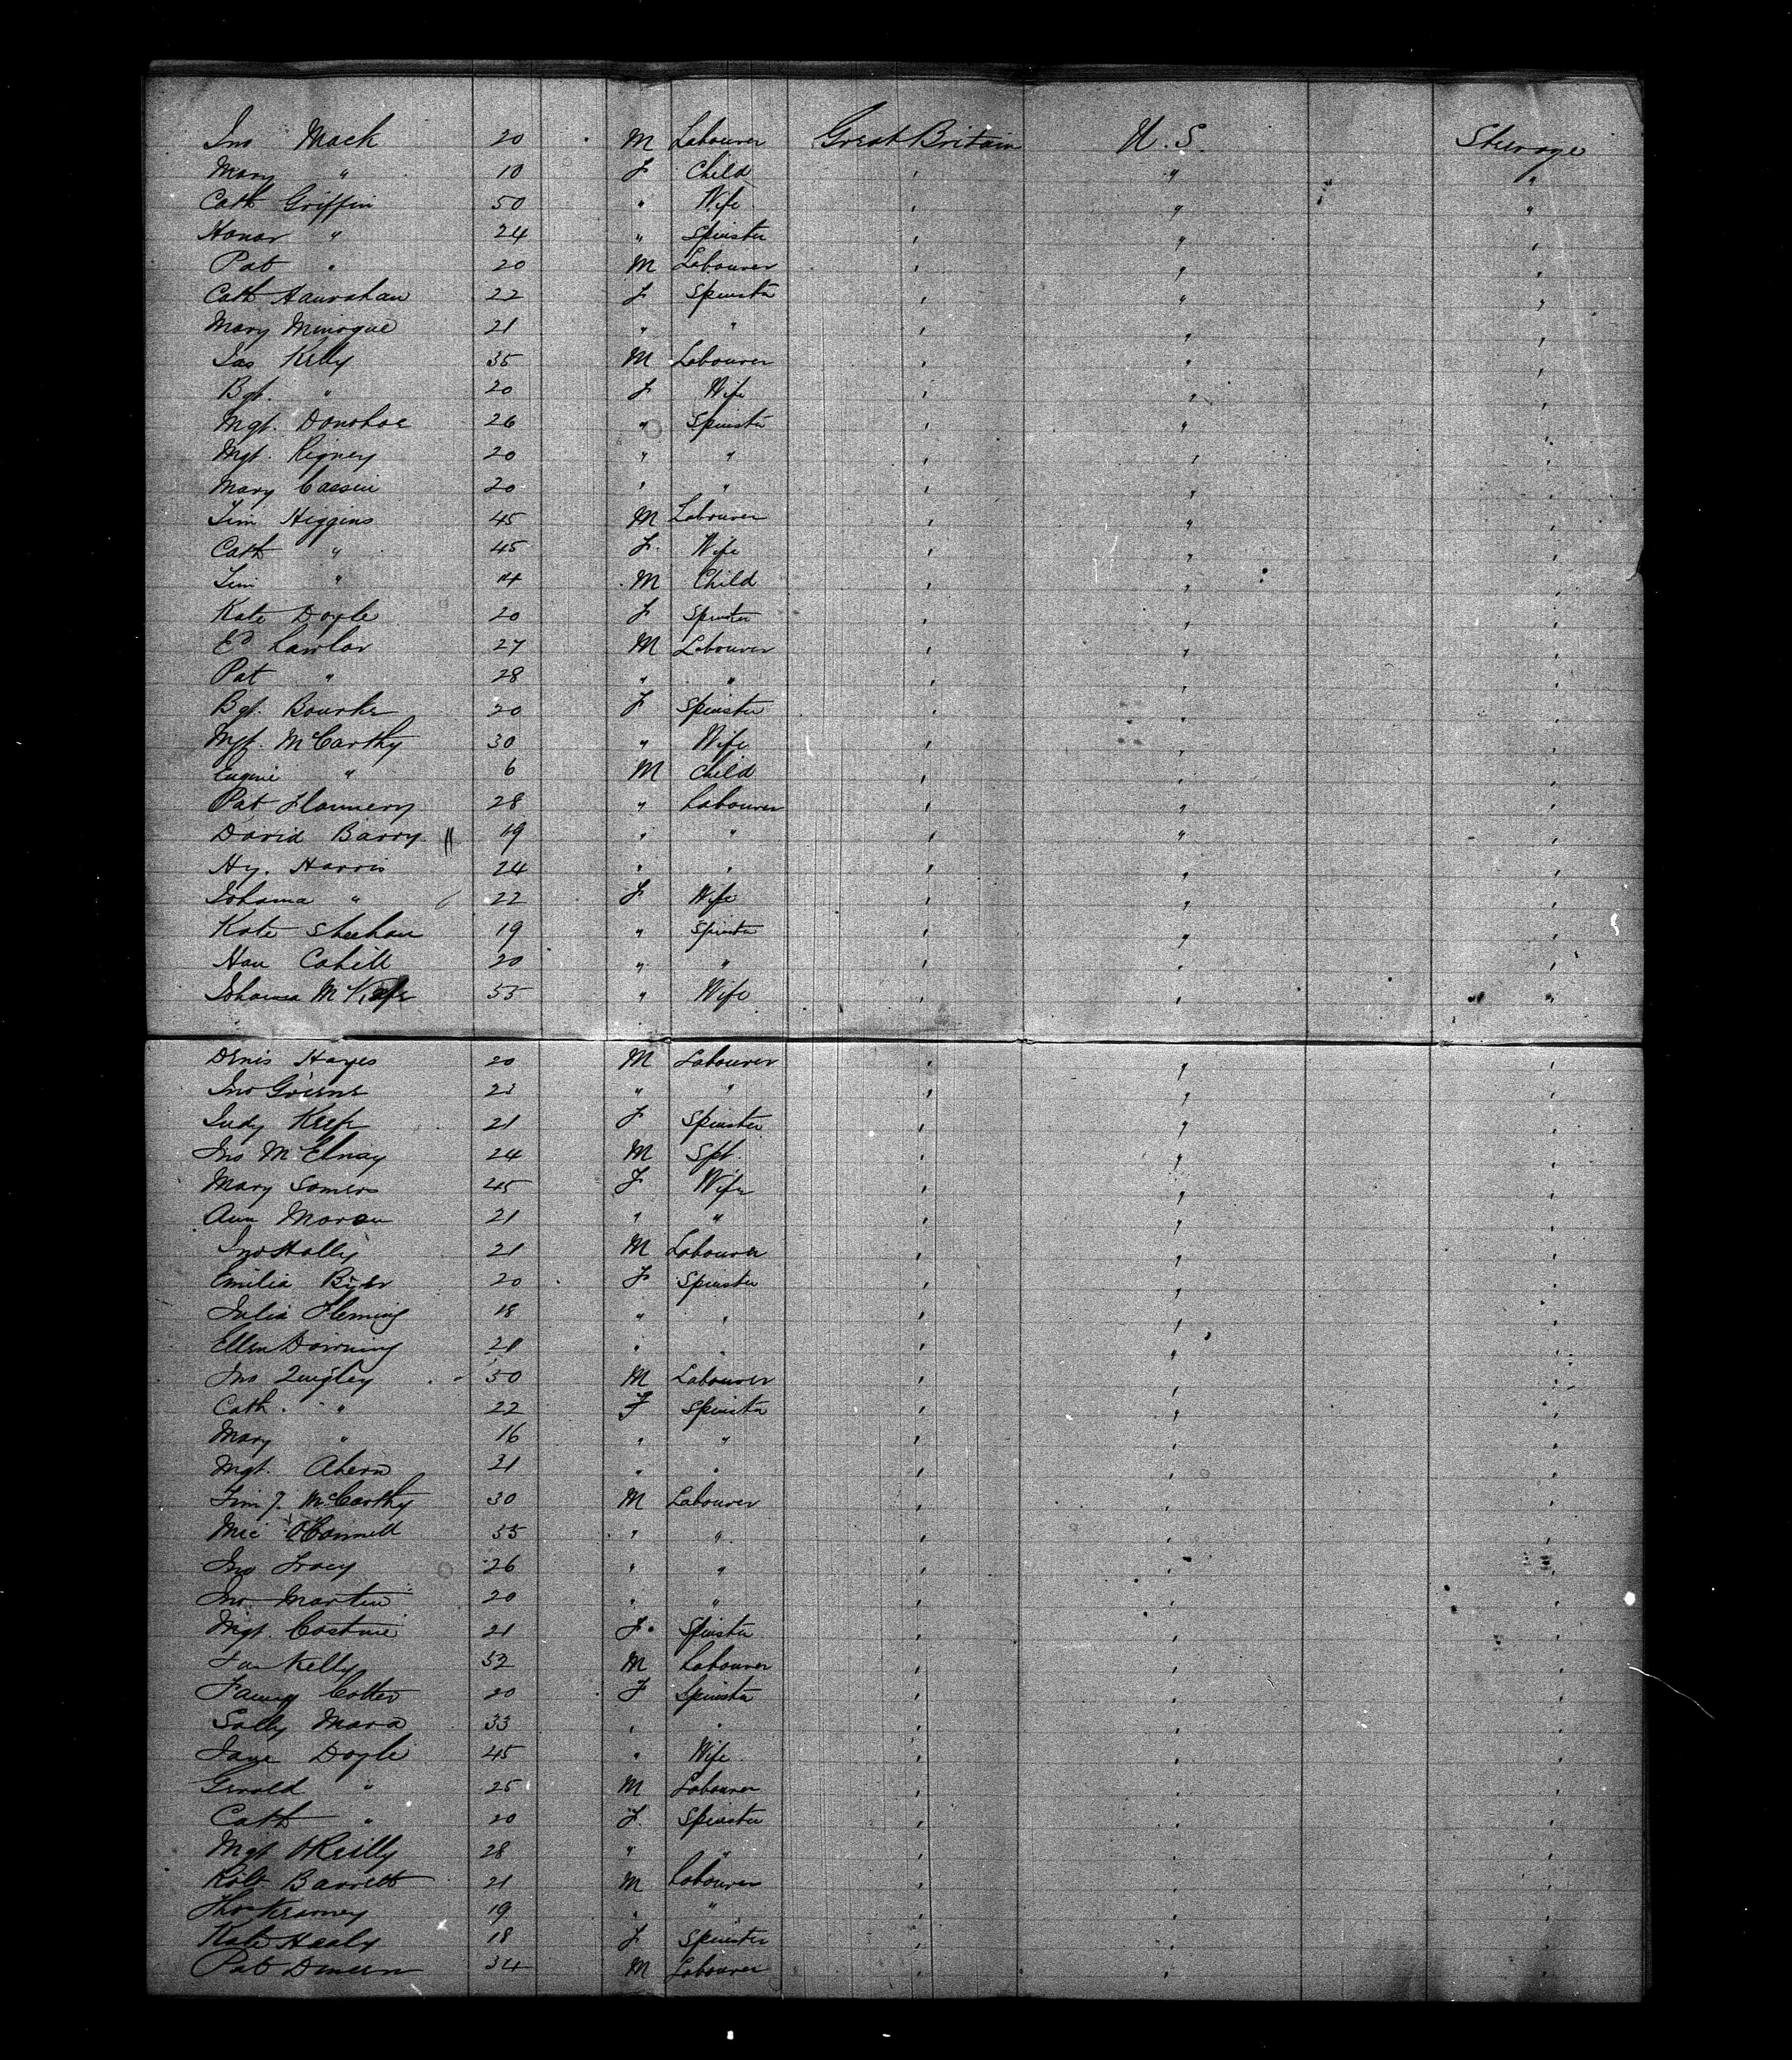 Jno Mack 20 M Labourer Great Britain U.S. Steerage
Mary " 10 F Child " " "
Cath Griffin 50 " Wife " " "
Honor " 24 " Spinster " " "
Pat " 20 M Labourer " " "
Cath Hanrahan 22 F Spinster " " "
Mary Minogue 21 " " " " "
Jas Kelly 35 M Labourer " " "
Bgt. " 20 F Wife " " "
Mgt. Donohoe 26 " Spinster " " "
Mgt. Rigney 20 " " " " "
Mary Cassin 20 " " " " "
Tim Higgins 45 M Labourer " " "
Cath " 45 F. Wife " " "
Tim " 14 M Child " " "
Kate Doyle 20 F Spinster " " "
Ed Lawlor 27 M Labourer " " "
Pat " 28 " " " " "
Bgt. Bourke 20 F Spinster " " "
Mgt. McCarthy 30 " Wife " " "
Eugine " 6 M Child " " "
Pat Flannery 28 " Labourer " " "
David Barry 19 " " " " "
Hy. Harris 24 " " " " "
Johanna " 22 F Wife " " "
Kate Sheehan 19 " Spinster " " "
Han Cahill 20 " " " " "
Johanna 55 " Wife " " "
Denis Hayes 20 M Labourer " " "
Jno " " " " "
Judy Keefe 21 F Spinster " " "
Jno McElnay 24 M Spt. " " "
Mary Somers 45 F Wife " " "
Ann Moran 21 " " " " "
Jno Holly 21 M Labourer " " "
Emilia 20 F Spinster " " "
Julia Fleming 18 " " " " "
Ellen Downing 21 " " " " "
Jno Quigley 50 M Labourer " " "
Cath. " 22 F Spinster " " "
Mary " 16 " " " " "
Mgt. Ahern 21 " " " " "
Tim J. McCarthy 30 M Labourer " " "
Mic O'Connell 35 " " " " "
Jno Tracy 26 " " " " "
Jno Martin 20 " " " " "
Mgt. 21 F. Spinster " " "
Kelly 52 M Labourer " " "
Fanny Cotter 20 F Spinster " " "
Sally Mara 33 " " " " "
Jane Doyle 45 " Wife " " "
Gerald " 25 M Labourer " " "
Cath " 20 F. Spinster " " "
Mgt O'Reilly 28 " " " " "
Robt. Barrett 21 M Labourer " " "
Thos Kearney 19 " " " " "
Kate Healy 18 F Spinster " " "
Pat Dineen 34 M Labourer " " "